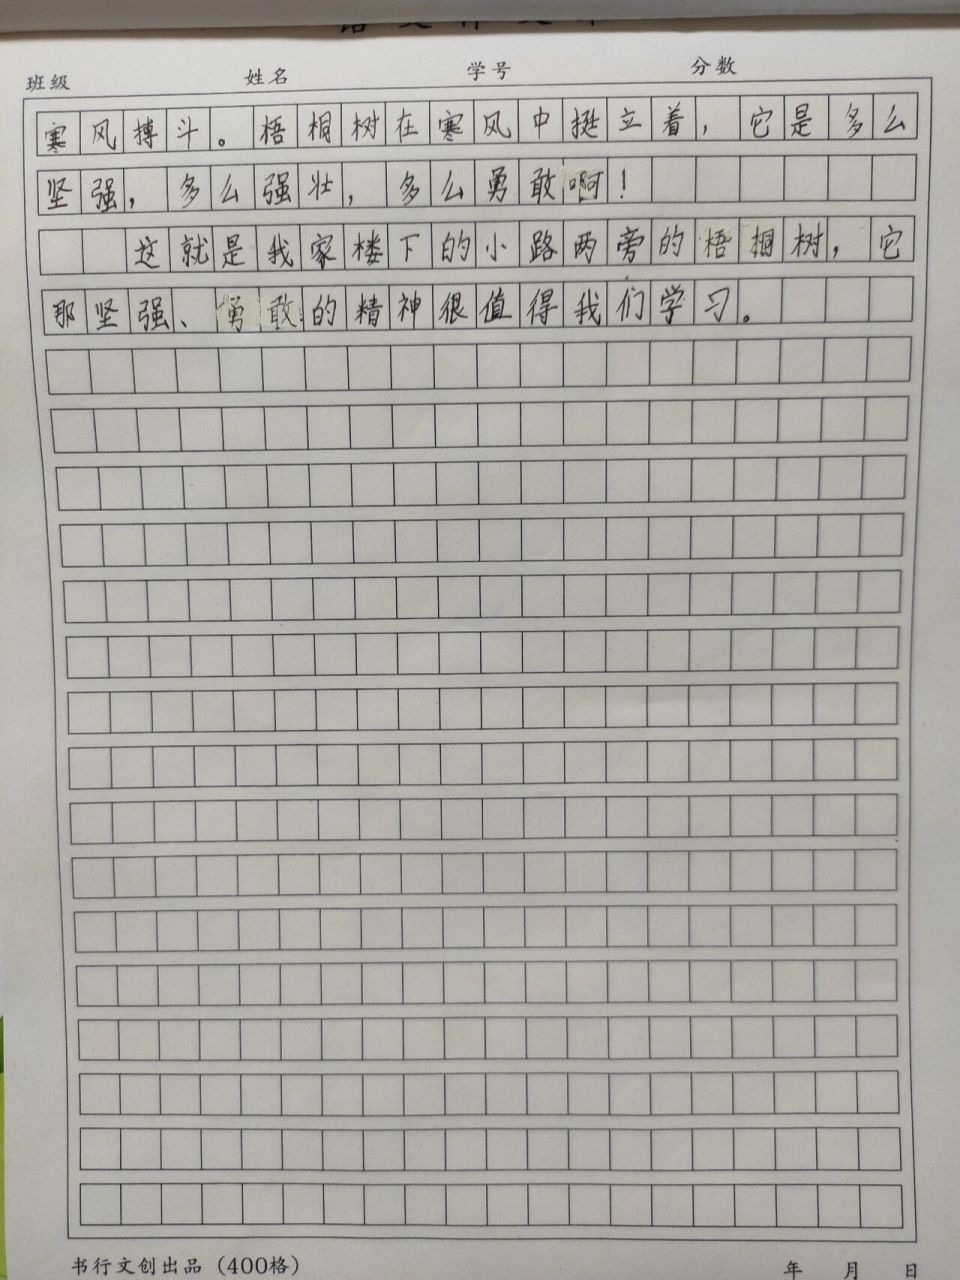 班级 姓名 学号 分数
寒风搏斗。梧桐树在寒风中挺立着，它是多么
坚强，多么强壮，多么勇敢啊！
这就是我家楼下的小路两旁的梧桐树，它
那坚强、勇敢的精神很值得我们学习。
书行文创出品（400格） 年 月 日